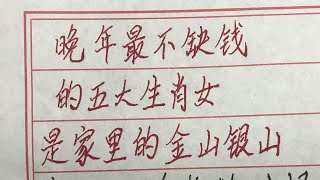 晚年最不缺钱
的五大生肖女
是家里的金山银山